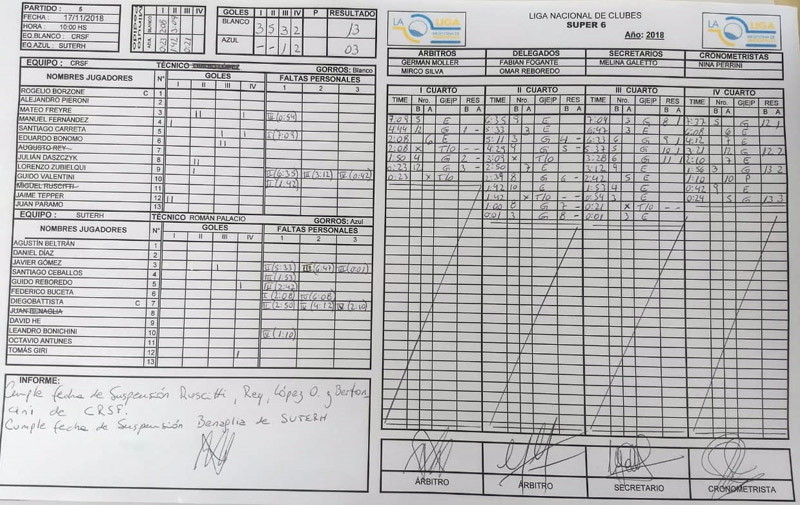 PARTIDO : 6
FECHA : 17/11/2018
HORA : 10:00 HS
EQ.BLANCO : CRSF
EQ.AZUL : SUTERH
I II III IV
BLANCO
AZUL
GOLES I II III IV P RESULTADO
BLANCO 3 5 3 2 13
AZUL - - 1 2 03
EQUIPO : CRSF TÉCNICO GORROS: Blanco
NOMBRES JUGADORES N° GOLES FALTAS PERSONALES
I II III IV 1 2 3
ROGELIO BORZONE C 1
ALEJANDRO PIERONI 2
MATEO FREYRE 3
MANUEL FERNÁNDEZ 4
SANTIAGO CARRETA 5
EDUARDO BONOMO 6
AUGUSTO REY 7
JULIÁN DASZCZYK 8
LORENZO ZUBIELQUI 9
GUIDO VALENTINI 10
MIGUEL RUSCITTI 11
JAIME TEPPER 12
JUAN PARAMO 13
EQUIPO : SUTERH TÉCNICO ROMÁN PALACIO GORROS: Azul
NOMBRES JUGADORES N° GOLES FALTAS PERSONALES
I II III IV 1 2 3
AGUSTÍN BELTRÁN 1
DANIEL DÍAZ 2
JAVIER GÓMEZ 3 II(5:33) III(6:47) IV(0:01)
SANTIAGO CEBALLOS 4 III(1:53)
GUIDO REBOREDO 5 III(2:42)
FEDERICO BUCETA 6 I(2:08) IV(6:08)
DIEGOBATTISTA C 7 II(2:50) IV(4:12) IV(2:10)
8
DAVID HE 9
LEANDRO BONICHINI 10 IV(1:10)
OCTAVIO ANTUNES 11
TOMÁS GIRI 12
13
INFORME:
Cumple fecha de Suspensión Ruscitti, Rey, López O. y Berton
cini de CRSF.
Cumple fecha de Suspensión Benaglia de SUTERH
LA LIGA
LIGA NACIONAL DE CLUBES
SUPER 6
Año: 2018
LA LIGA
ÁRBITROS DELEGADOS SECRETARIOS CRONOMETRISTAS
GERMÁN MOLLER FABIÁN FOGANTE MELINA GALETTO NINA PERRINI
MIRCO SILVA OMAR REBOREDO
I CUARTO II CUARTO III CUARTO IV CUARTO
TIME Nro. G|E|P RES TIME Nro. G|E|P RES TIME Nro. G|E|P RES TIME Nro. G|E|P RES
B A B A B A B A B A B A B A B A
7:09 5 E 6:35 9 E 7:04 3 G 8 1 7:27 5 G 12 1
4:44 12 G 1 - 5:33 3 E 6:47 3 E 6:08 6 E
2:08 6 E 5:11 3 G 4 - 6:23 6 G 9 1 4:12 7 E
2:08 x T/O - - 4:29 9 G 5 - 5:37 5 G 10 1 3:21 12 G 12 2
1:50 4 G 2 - 3:09 x T/O 3:28 6 G 11 1 2:10 7 E
0:23 12 G 3 - 2:50 7 E 3:12 9 E 1:56 3 G 13 2
0:23 x T/O 2:39 8 G 6 - 2:42 5 E 1:10 10 P
1:42 10 E 1:53 4 E 0:42 9 E
1:42 x T/O - - 0:54 3 E 0:24 5 G 13 3
1:00 8 G 7 - 0:21 x T/O - -
0:01 3 G 8 - 0:01 3 E
ÁRBITRO ÁRBITRO SECRETARIO CRONOMETRISTA